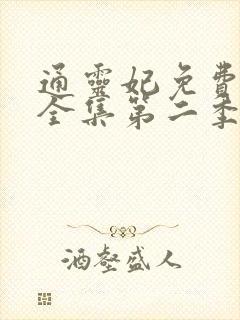 通靈妃免費
全集第二季
酒壑盛人